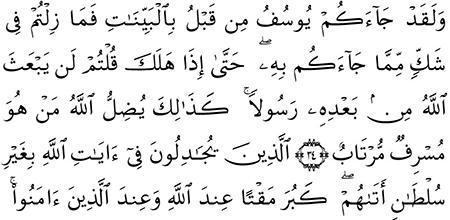 وَلَقَدْ جَآءَكُمْ يُوسُفُ مِن قَبْلُ بِٱلْبَيِّنَٰتِ فَمَا زِلْتُمْ فِى
شَكٍّ مِّمَّا جَآءَكُم بِهِۦ ۖ حَتَّىٰٓ إِذَا هَلَكَ قُلْتُمْ لَن يَبْعَثَ
ٱللَّهُ مِنۢ بَعْدِهِۦ رَسُولًا ۚ كَذَٰلِكَ يُضِلُّ ٱللَّهُ مَنْ هُوَ
مُسْرِفٌ مُّرْتَابٌ ﴿٣٤﴾ ٱلَّذِينَ يُجَٰدِلُونَ فِىٓ ءَايَٰتِ ٱللَّهِ بِغَيْرِ
سُلْطَٰنٍ أَتَىٰهُمْ ۖ كَبُرَ مَقْتًا عِندَ ٱللَّهِ وَعِندَ ٱلَّذِينَ ءَامَنُوا۟ ۚ